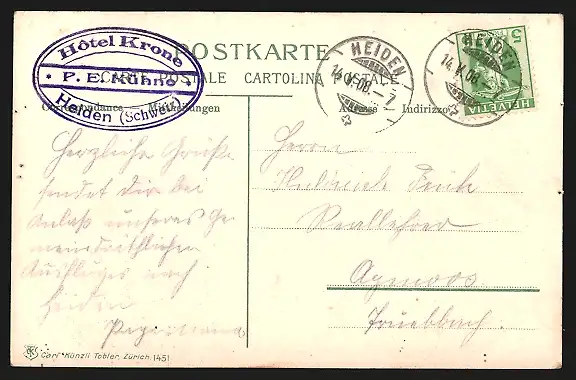 Hôtel Krone
P. E. Kühne
Heiden (Schweiz)
POSTKARTE
CARTE POSTALE CARTOLINA POSTALE
Correspondance — Mitteilungen
Adresse Indirizzo
HEIDEN
14.V.08.–7
HEIDEN
14.V.08
HELVETIA
5
Herzliche Grüße
sendet dir bei
Anlaß unseres Ge
meinderätlichen
Ausfluges nach
Heiden
Herrn
Reallehrer
Azmoos
Truebbach.
Carl Künzli Tobler, Zürich. 1451